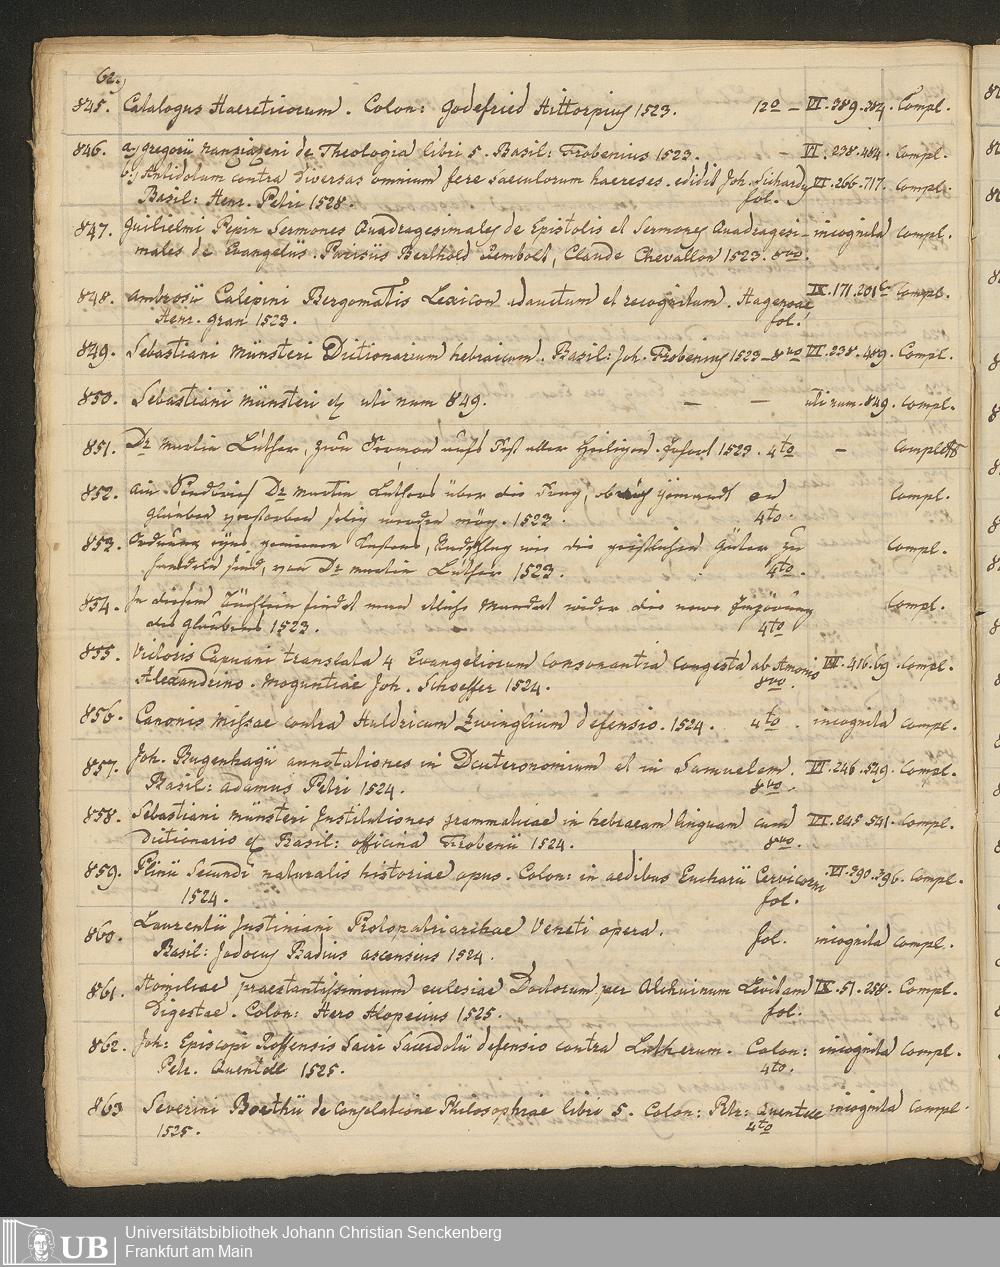 62.
845. Catalogus Haereticorum. Colon: Godefried Hittorpius 1523. 12º – VI. 389. 384. Compl.
846. a) Gregorii Nanziazeni de Theologia libri 5. Basil: Frobenius 1523. – VI. 238. 484. Compl.
b) Antidotum contra diversas omnium fere saeculorum haereses. edidit Joh. Sichardus VI. 266. 717. Compl.
Basil: Henr. Petri 1528. fol.
847. Guilielmi Pepin Sermones Quadragesimales de Epistolis et Sermones Quadragesi- incognita Compl.
males de Evangeliis. Parisiis Berthold Rembolt, Claude Chevallon 1523. 8vo.
848. Ambrosii Calepini Bergomatis Lexicon adauctum et recognitum. Hagenoae IX. 171. 201 Compl.
Henr. Gran 1523. fol.
849. Sebastiani Münsteri Dictionarium hebraicum. Basil: Joh. Frobenius 1523 – 8vo VI. 238. 489. Compl.
850. Sebastiani Münsteri uti num 849. – – uti num. 849. Compl.
851. Dr. Martin Luther, zwu Sermon aufs Fest aller Heiligen. Erfort 1523. 4to – Complett
852. Ain Sendbrief Dr. Martin Luthers über die Frag, ob auch jemandt on Compl.
glauben verstorben selig werden müg. 1523. 4to.
853. Ordnung eyns gemeinen Kastens, Radschlag wie die geistlichen Güter zu Compl.
handeln sind, von Dr. Martin Luther 1523. 4to.
854. In diesem Büchlein findet man etliche Mandat wider die newe Compl.
des Glaubens 1523. 4to
855. Victoris Capuani translata 4 Evangeliorum consonantia congesta ab Amonio VI. 416. 69. Compl.
Alexandrino. Moguntiae Joh. Schoeffer 1524. 8vo.
856. Canonis Missae contra Huldricum Zwinglium defensio. 1524. 4to. incognita Compl.
857. Joh. Bugenhagii annotationes in Deuteronomium et in Samuelem. VI. 246. 549. Compl.
Basil: Adamus Petri 1524. 8vo.
858. Sebastiani Münsteri Institutiones grammaticae in hebraeam linguam cum VI. 245. 541. Compl.
dictionario Basil: officina Frobenii 1524. 8vo.
859. Plinii Secundi naturalis historiae opus. Colon: in aedibus Eucharii Cervicorni VI. 390. 396. Compl.
1524. fol.
860. Laurentii Justiniani Protopatriarchae Veneti opera. fol. incognita Compl.
Basil: Jodocus Badius ascensius 1524.
861. Homiliae praestantissimorum eclesiae Doctorum, per Alchuinum Levitam IX. 51. 258. Compl.
Digestae. Colon: Hero Alopecius 1525. fol.
862. Joh: Episcopi Roffensis Sacri Sacerdotii defensio contra Lutherum. Colon: incognita Compl.
Petr. Quentell 1525. 4to.
863 Severini Boethii de Consolatione Philosophiae libri 5. Colon: Petr: Quentell incognita Compl.
1525. 4to
UB Universitätsbibliothek Johann Christian Senckenberg
Frankfurt am Main